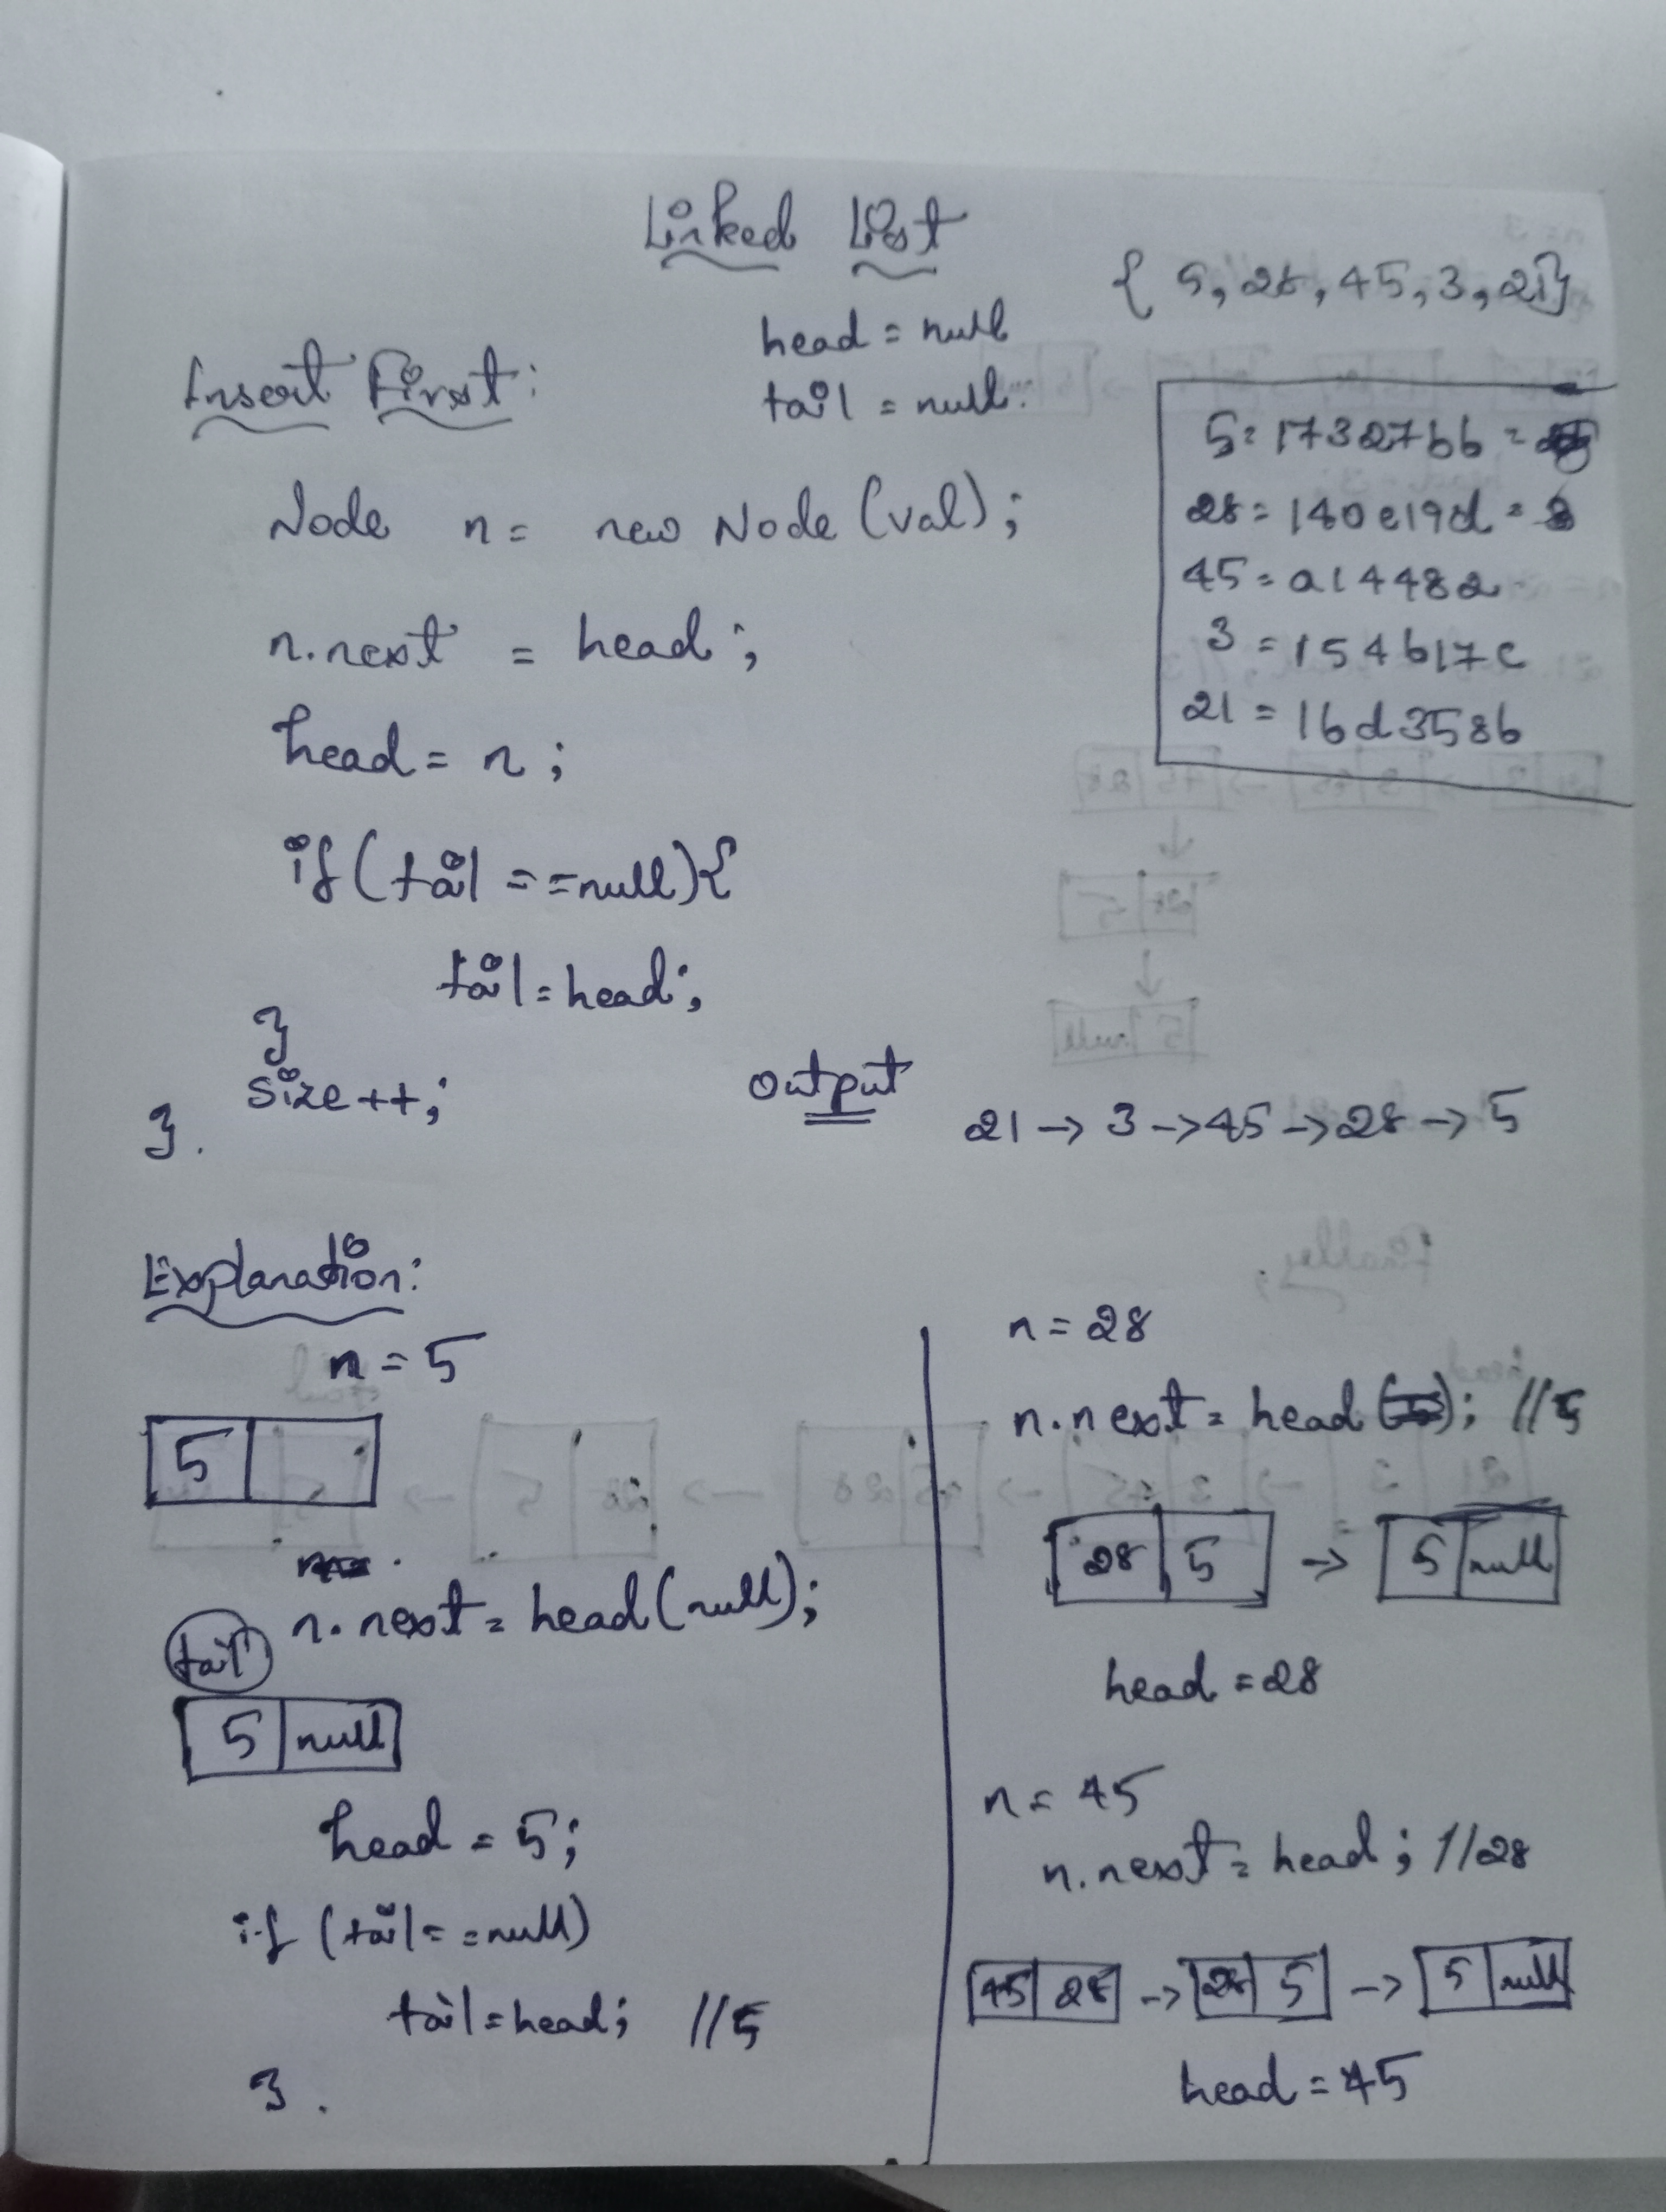 Linked List
{ 5, 28, 45, 3, 21}
head = null
tail = null.
Insert First:
5 = 17327bb =
28 = 140e19d =
45 = a14482
3 = 154b17c
21 = 16d3586
Node n = new Node (val);
n.next = head;
head = n;
if (tail == null){
tail = head;
}
size++;
}.
Output
21 -> 3 -> 45 -> 28 -> 5
Explanation:
n = 5
5
n.next = head (null);
tail
5 null
head = 5;
if (tail == null)
tail = head; //5
}.
n = 28
n.next = head ( ); //5
28 5 -> 5 null
head = 28
n = 45
n.next = head; //28
45 28 -> 28 5 -> 5 null
head = 45